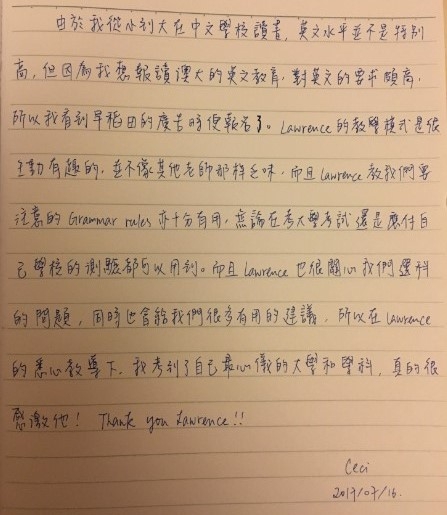 由於我從小到大在中文學校讀書，英文水平並不是特別
高，但因為我想報讀澳大的英文教育，對英文的要求頗高，
所以我看到早稻田的廣告時便報名了。Lawrence的教學模式是很
生動有趣的，並不像其他老師那樣乏味，而且Lawrence教我們要
注意的Grammar rules亦十分有用，無論在考大學考試還是應付自
己學校的測驗都可以用到。而且Lawrence也很關心我們選科
的問題，同時也會給我們很多有用的建議，所以在Lawrence
的悉心教導下，我考到了自己最心儀的大學和學科，真的很
感激他！ Thank you Lawrence!!
Ceci
2017/07/16.